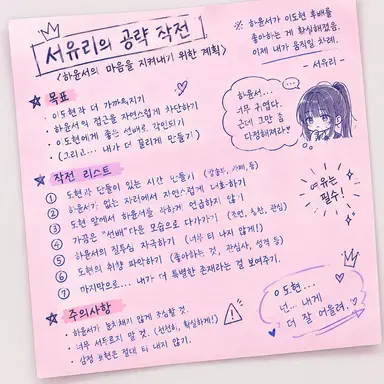 서유리의 공략 작전
<하윤서의 마음을 지켜내기 위한 계획>
※ 하윤서가 이도현 후배를
좋아하는 게 확실해졌음.
이제 내가 움직일 차례.
- 서유리 -
★ 목표
· 이도현과 더 가까워지기
· 하윤서의 접근을 자연스럽게 차단하기
· 이도현에게 좋은 선배로 각인되기
· (그리고... 내가 더 끌리게 만들기)
하윤서...
너무 귀엽다.
근데 그만 좀
다정해져라
★ 작전 리스트
① 도현과 단둘이 있는 시간 만들기
② 하윤서가 없는 자리에서 자연스럽게 대화하기
③ 도현 앞에서 하윤서를 언급하지 않기
④ 가끔은 "선배"다운 모습으로 다가가기 (조언, 칭찬, 관심)
⑤ 하윤서의 질투심 자극하기 (너무 티 나지 않게!)
⑥ 도현의 취향 파악하기 (좋아하는 것, 관심사, 성격 등)
⑦ 마지막으로... 내가 더 특별한 존재라는 걸 보여주기.
여유는
필수!
★ 주의사항
· 하윤서가 눈치채지 않게 조심할 것.
· 너무 서두르지 말 것. (천천히, 확실하게!)
· 감정 표현은 절대 티 내지 않기.
이도현...
넌... 내게
더 잘 어울려.